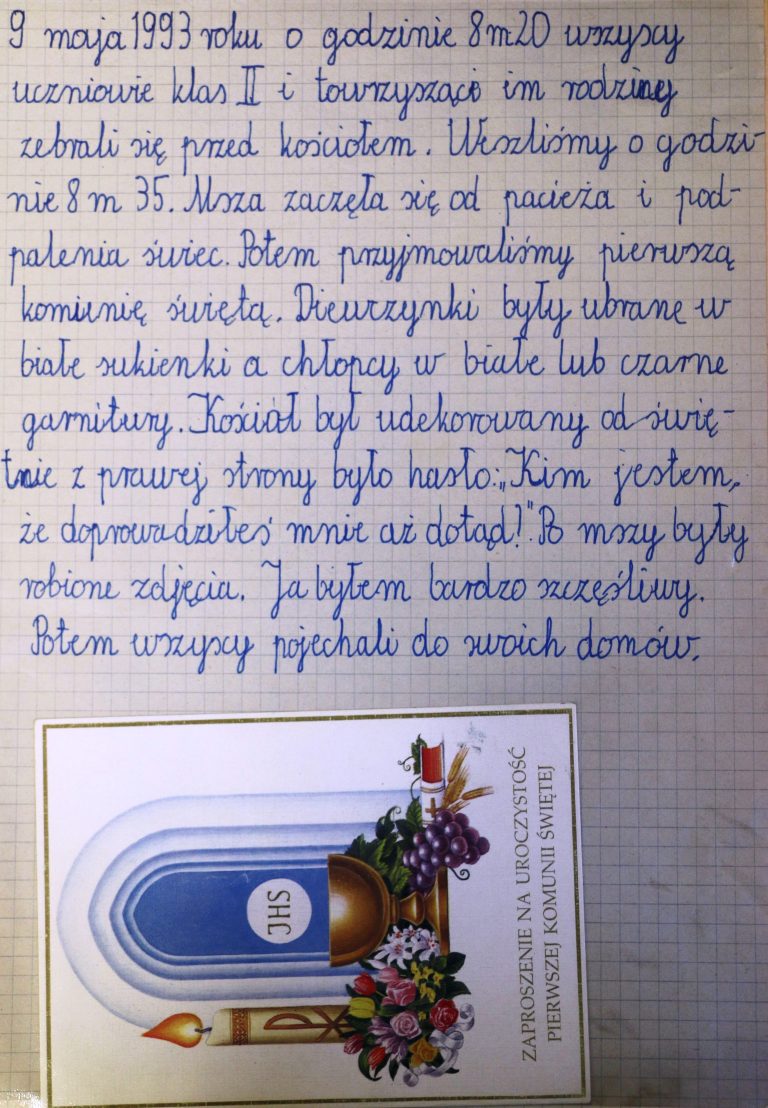 9 maja 1993 roku o godzinie 8 m 20 wszyscy
uczniowie klas II i towrzyszące im rodziny
zebrali się przed kościołem. Weszliśmy o godzi-
nie 8 m 35. Msza zaczęła się od pacieża i pod-
palenia świec. Potem przyjmowaliśmy pierwszą
komunię świętą. Diewrzynki były ubrane w
białe sukienki a chłopcy w białe lub czarne
garnitury. Kościół był udekorowany od świę-
tnie z prawej strony było hasło: „Kim jestem,
że doprowadziłeś mnie aż dotąd!". Po mszy były
robione zdjęcia. Ja byłem bardzo szczęśliwy.
Potem wszyscy pojechali do swoich domów.
JHS
ZAPROSZENIE NA UROCZYSTOŚĆ
PIERWSZEJ KOMUNII ŚWIĘTEJ